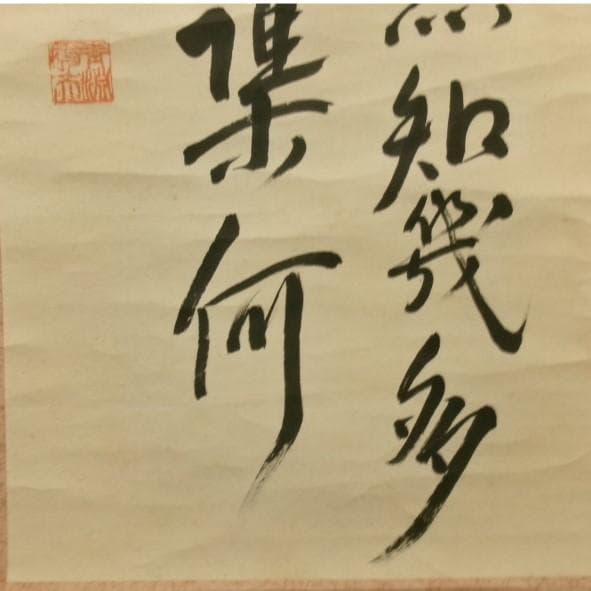 知幾多
集何